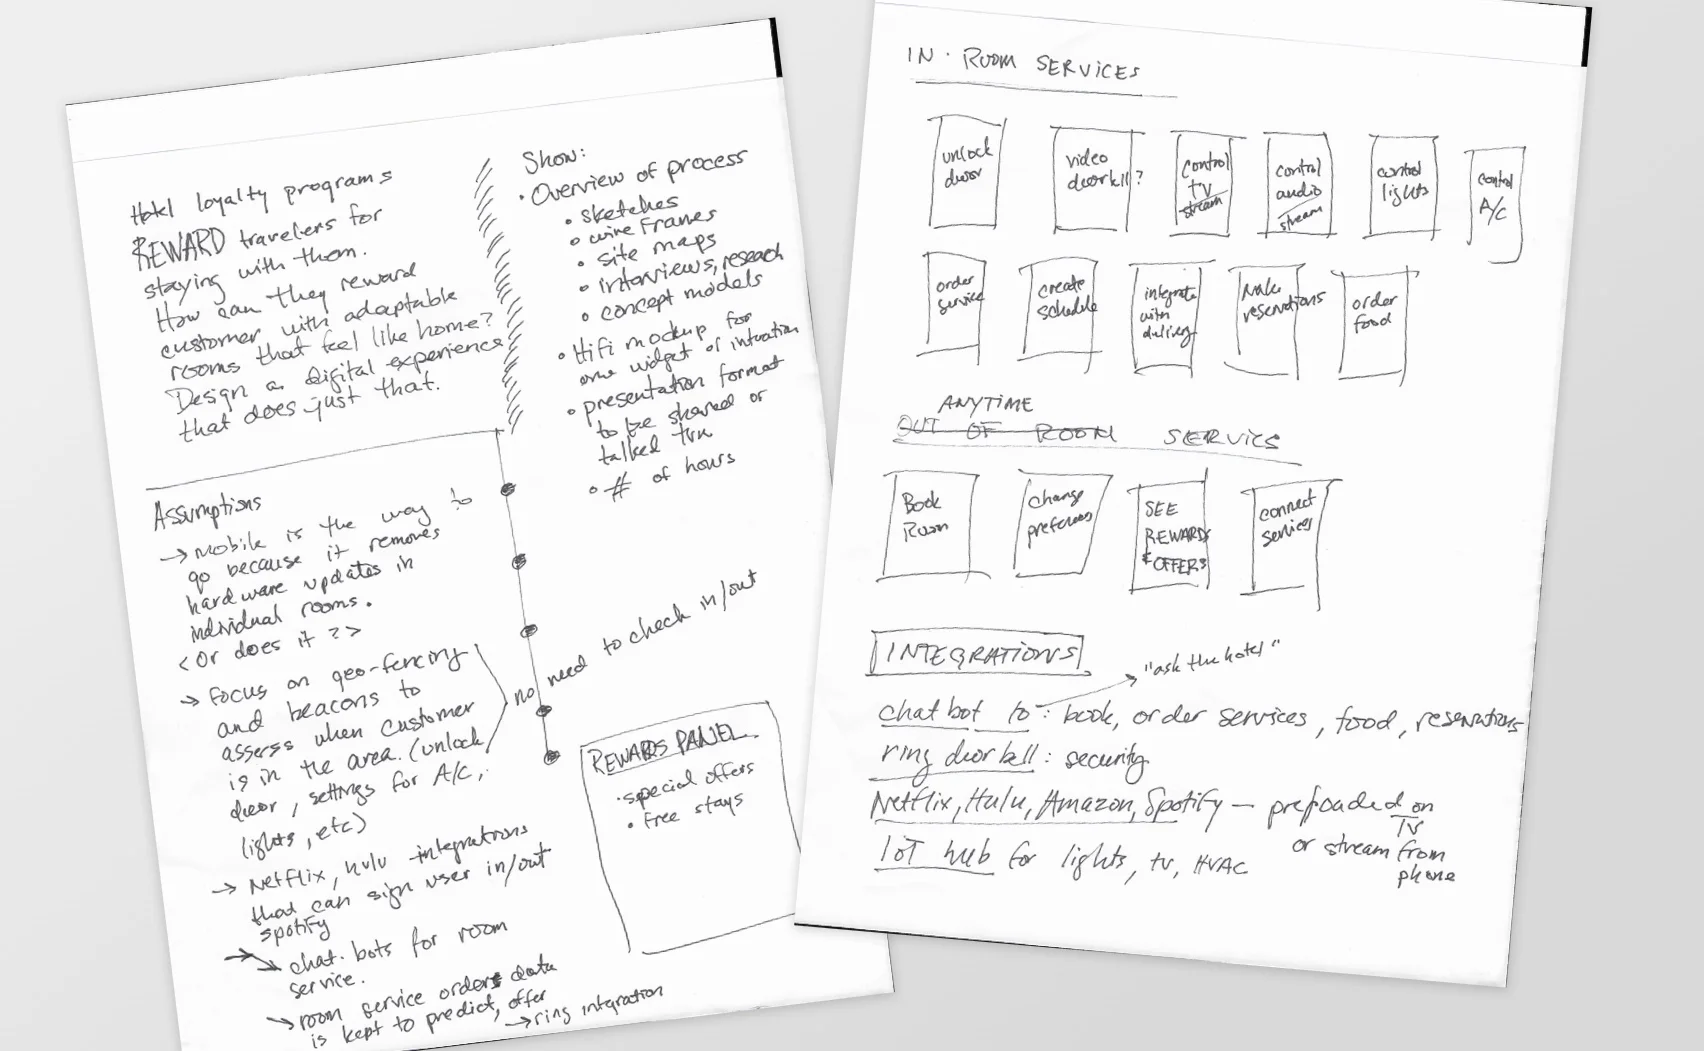 Hotel loyalty programs
REWARD travelers for
staying with them.
How can they reward
customer with adaptable
rooms that feel like home?
Design a digital experience
that does just that.
Show:
• Overview of process
• sketches
• wire frames
• site maps
• interviews, reseach
• concept models
• Hifi mockup for
one widget or
• presentation format
to be shared or
talked thru
• # of hours
Assumptions
→ Mobile is the way to
go because it removes
hardware updates in
individual rooms.
<Or does it ?>
→ Focus on geo-fencing
and beacons to
assess when customer
is in the area. (unlock
door, settings for A/C,
lights, etc)
no need to check in/out
→ Netflix, hulu integrations
that can sign user in/out
spotify
→ chat.bots for room
service.
→ room service orders data
is kept to predict, offer
→ ring integration
REWARDS PANEL
• special offers
• free stays
IN·ROOM SERVICES
unlock
door
video
doorbell?
control
TV
stream
control
audio
stream
control
lights
control
A/C
order
service
create
schedule
integrate
with
delivery
Make
reservations
order
food
ANYTIME
OUT OF ROOM SERVICE
Book
Room
change
prefernces
SEE
REWARDS
& OFFERS
connect
services
INTEGRATIONS
"ask the hotel"
chat bot to: book, order services, food, reservations
ring door bell: security
Netflix, Hulu, Amazon, Spotify — preloaded on
TV
or stream from
phone
IoT hub for lights, tv, HVAC